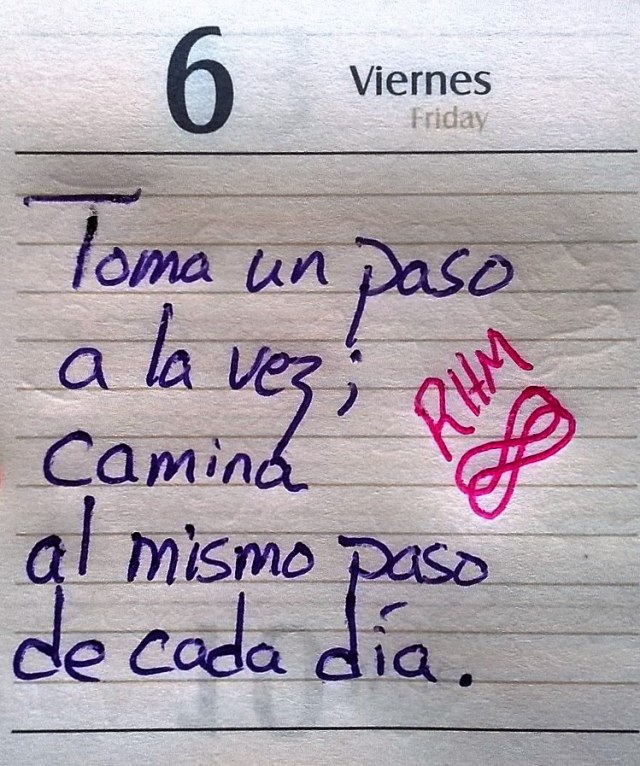 6 Viernes
Friday
Toma un paso
a la vez;
RHM
Camina
al mismo paso
de cada día.